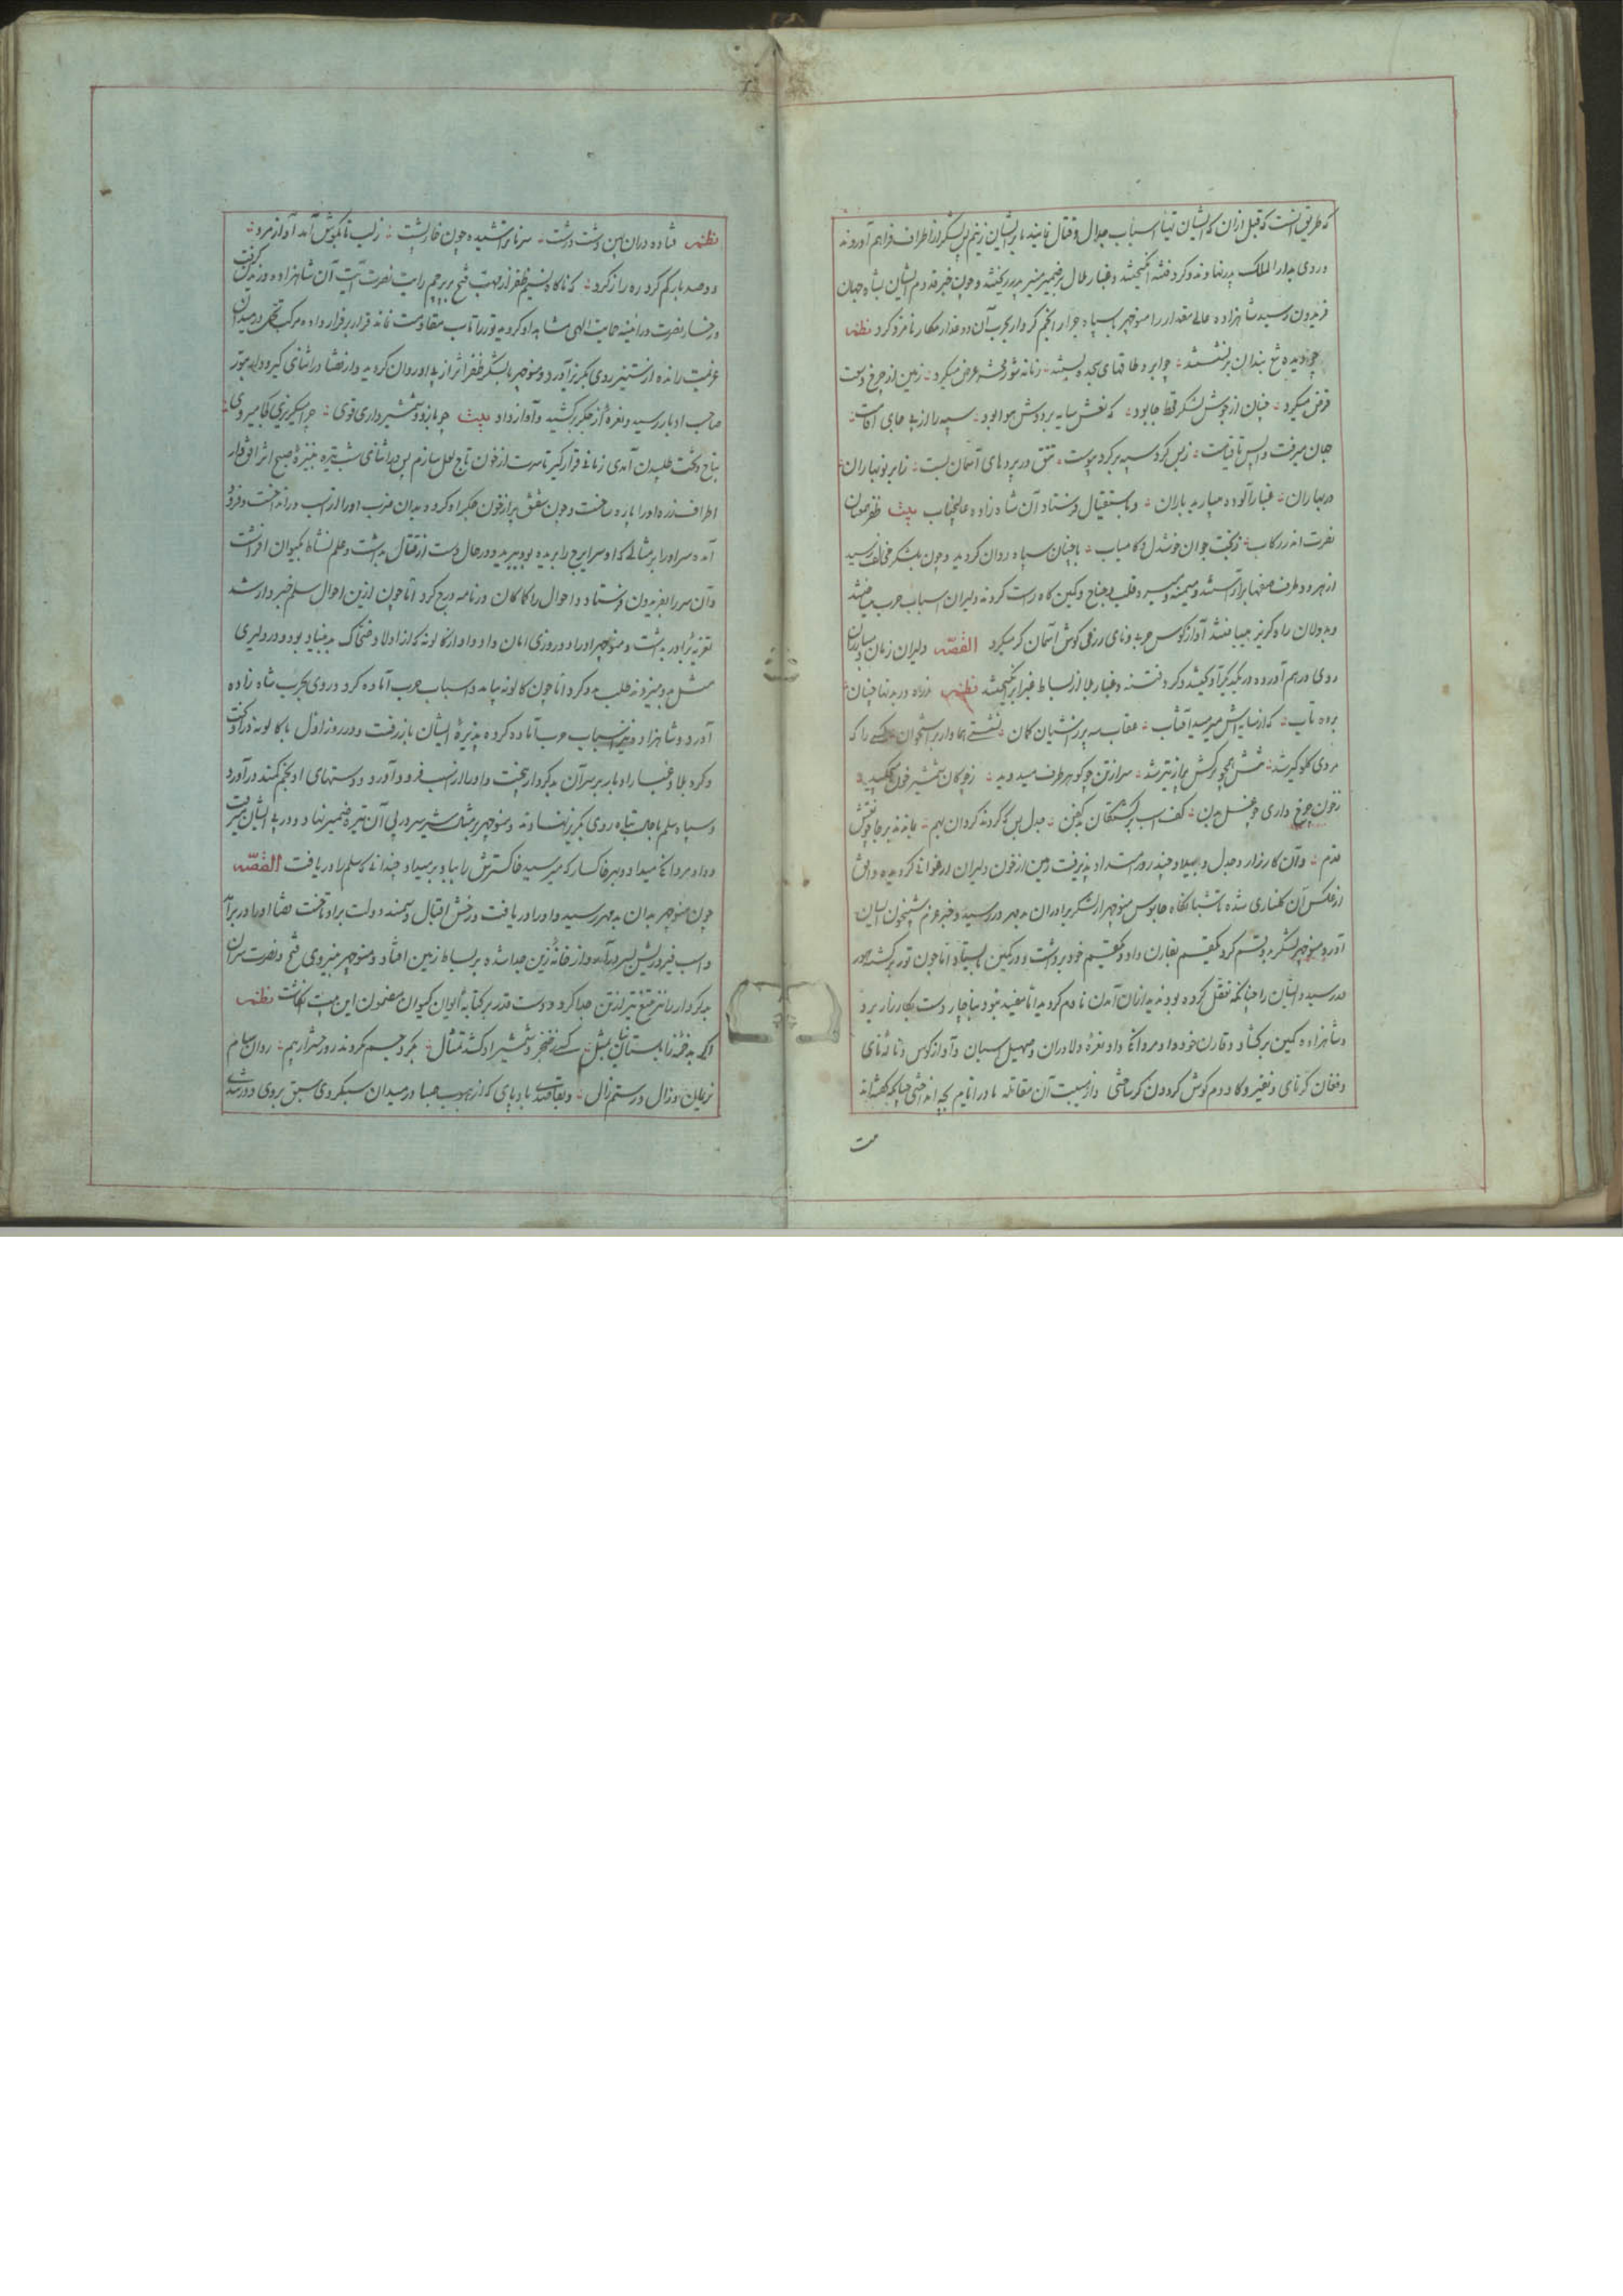 که طریق آنست که قبل از آن که ایشان تهیهٔ اسباب جدال و قتال نمایند ما بر ایشان زنیم پس لشکر از اطراف فراهم آوردند
و روی بدار الملک پدر نهادند و کرد فتنه انگیختند و غبار ملال بر ضمیر منیر پدر ریختند و چون خبر قدوم ایشان بشاه جهان
فریدون رسید شاهزاده عالی مقدار را منوچهر با سپاه جرار انجم کردار بحرب آن دو غدار مکار نامزد کرد نظم
زمانه شور محشر عرض میکرد زمین از چرخ وسعت
قرض میکرد چنان از جوش لشکر قحط جا بود که نعش سایه بر دوش هوا بود سپه را از
جهان میرفت و پس تا قیامت ز بس کرد سپه بر کرد پیوست تتق در پرده‌های آسمان بست
در بهاران غبار آلوده میبارید باران و باستقبال فرستاد آن شاه زاده عالیجناب بیت ظفر همعنان
نصرت اندر رکاب ز بخت جوان خوشدل و کامیاب با چنان سپاه روان کردید و چون بلشکر مخالف رسید
از هر دو طرف صفها برآراستند و میمنه و میسره و قلب و جناح و کمین کاه راست کردند و دلیران اسباب حرب
و بددلان راه کریز آواز کوس حربی و نای رزمی کوش آسمان کر میکرد القصه دلیران زمان و مبارزان
روی در هم آورده در یکدیکر آویختند و کرد فتنه و غبار بلا از بساط غبرا برانگیختند نظم زره در بدنها چنان
برده تاب که از سایه‌اش میرمید آفتاب عقاب سه پر ز آشیان کمان نشستی هما وار بر استخوان کسی را که
سر از تن چو کو هر طرف میدوید ز چوکان شمشیر خون میچکید
ز خون چرخ
قدم و آن کارزار و جدل و چند روز امتداد پذیرفت زمین از خون دلیران ارغوانی کردیده و افق
از عکس آن کلناری شده تا شبانکاه جاسوس منوچهر از لشکر برادران بد مهر در رسید و خبر عزم شبیخون ایشان
آورد و منوچهر لشکر بدو قسم کرد یکقسم بقارن داد و یکقسم خود برداشت و در کمین بایستاد اما چون تور برکشته
در رسید و ایشان را چنانکه نقل کرده بودند دید از آن آمدن نادم کردید اما مفید نبود بناچار دست بکارزار برد
و شاهزاده کمین برکشاد و قارن خود داد مردانکی داد و نعرهٔ دلاوران و صهیل اسبان و آواز کوس و ناله نای
و فغان کرنای و نفیر و کاو دم کوش کردون کر ساختی و از سیبت آن مقاتله مادر ایام بچه انداختی
نظم فتاده در آن پهن دشت درشت سر ناتراشیده چون خارپشت ز لب تا بگوش آمد آواز مرد
دو صد بار کم کرد ره را ز کرد که ناکاه نسیم ظفر از مهب فتح بر پرچم رایت نصرت آیت آن شاهزاده وزیدن گرفت
و رخسار نصرت در آینه حمایت الهی مشاهده کردید تور را تاب مقاومت نماند قرار بر فرار داده مرکب در میدان
عزیمت رانده از ستیز روی بکریز آورد و منوچهر با لشکر ظفر اثر از پی او روان کردید و از قضا در اثنای کیر و دار بتور
صاحب ادبار رسید و نعرهٔ از جگر برکشید و آواز داد بیت چو بازو و شمشیر داری قوی چرا میکریزی کجا میروی
بتاج و تخت طلبیدن آمدی زمانی قرار کیر تا سرت از خون تاج لعل سازم پس در اثنای شب تیره بنیزهٔ صبح اشراق
اطراف زره او را پاره ساخت و چون شفق پر از خون جکر او کرد و بدان ضرب او را از اسب در انداخت و فرود
آمده سر او را بر مثالی که او سر ایرج را بریده بود ببرید و در حال دست از قتال بداشت و علم نشاط بکیوان افراشت
و آن سر را بفریدون فرستاد و احوال را کماکان در نامه درج کرد اما چون ازین احوال سلم خبردار شد
تعزیه برادر بداشت و منوچهر او را دو روزی امان داد و او از کالونه که از اولاد ضحاک بد بنیاد بود و در دلیری
مثل مدد طلب کرد اما چون کالونه بیامد و اسباب حرب آماده کرد و روی بحرب شاه زاده
آورد و شاهزاده نیز اسباب حرب آماده کرده پذیرهٔ ایشان باز رفت و در روز اول با کالونه
و کرد بلا و غبار ادبار بر سر آن بد کردار بیخت و او را از اسب فرود آورد و دستهای او بخم کمند در آورد
و سپاه سلم با حالت تباه روی بکریز نهادند و منوچهر بر مثال شیر سر در پی آن تیره ضمیر نهاد و در پی ایشان میرفت
و داد مردانکی میداد و بهر خاکسار که میرسید خاکسترش را بباد بر میداد چندانکه سلم را دریافت القصه
چون منوچهر بدان بد مهر رسید و او را دریافت و رخش اقبال و سمند دولت بر او تاخت قضا او را در
و از خانهٔ زین جدا شده بر بساط زمین افتاد و منوچهر بنیروی فتح و نصرت سر آن
بد کردار را نیز بتیغ تیز از تن جدا کرد و دست قدر بر کتابهٔ ایوان کیوان مضمون این بیت نکاشت نظم
بکرد و جسم کردند روز حشر از بیم روان سام
نریمان و زال و رستم زال و بعاقبت بادپای که از هبوب صبا در میدان سبکروی سبق بردی